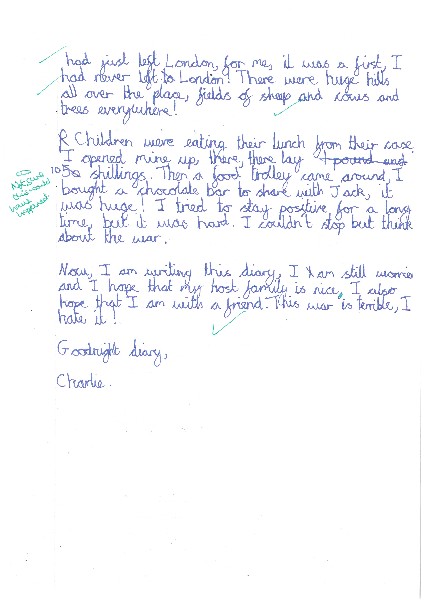 had just left London, for me, it was a first, I
had never left to London! There were huge hills
all over the place, fields of sheep and cows and
trees everywhere!
R Children were eating their lunch from their case
I opened mine up, there, there lay 1 pound and
10 50 shillings. Then a food trolley came around, I
bought a chocolate bar to share with Jack, it
was huge! I tried to stay positive for a long
time, but it was hard. I couldn't stop but think
about the war.
Now, I am writing this diary, I am still worrie
and I hope that my host family is nice, I also
hope that I am with a friend. This war is terrible, I
hate it!
Goodnight diary,
Charlie.